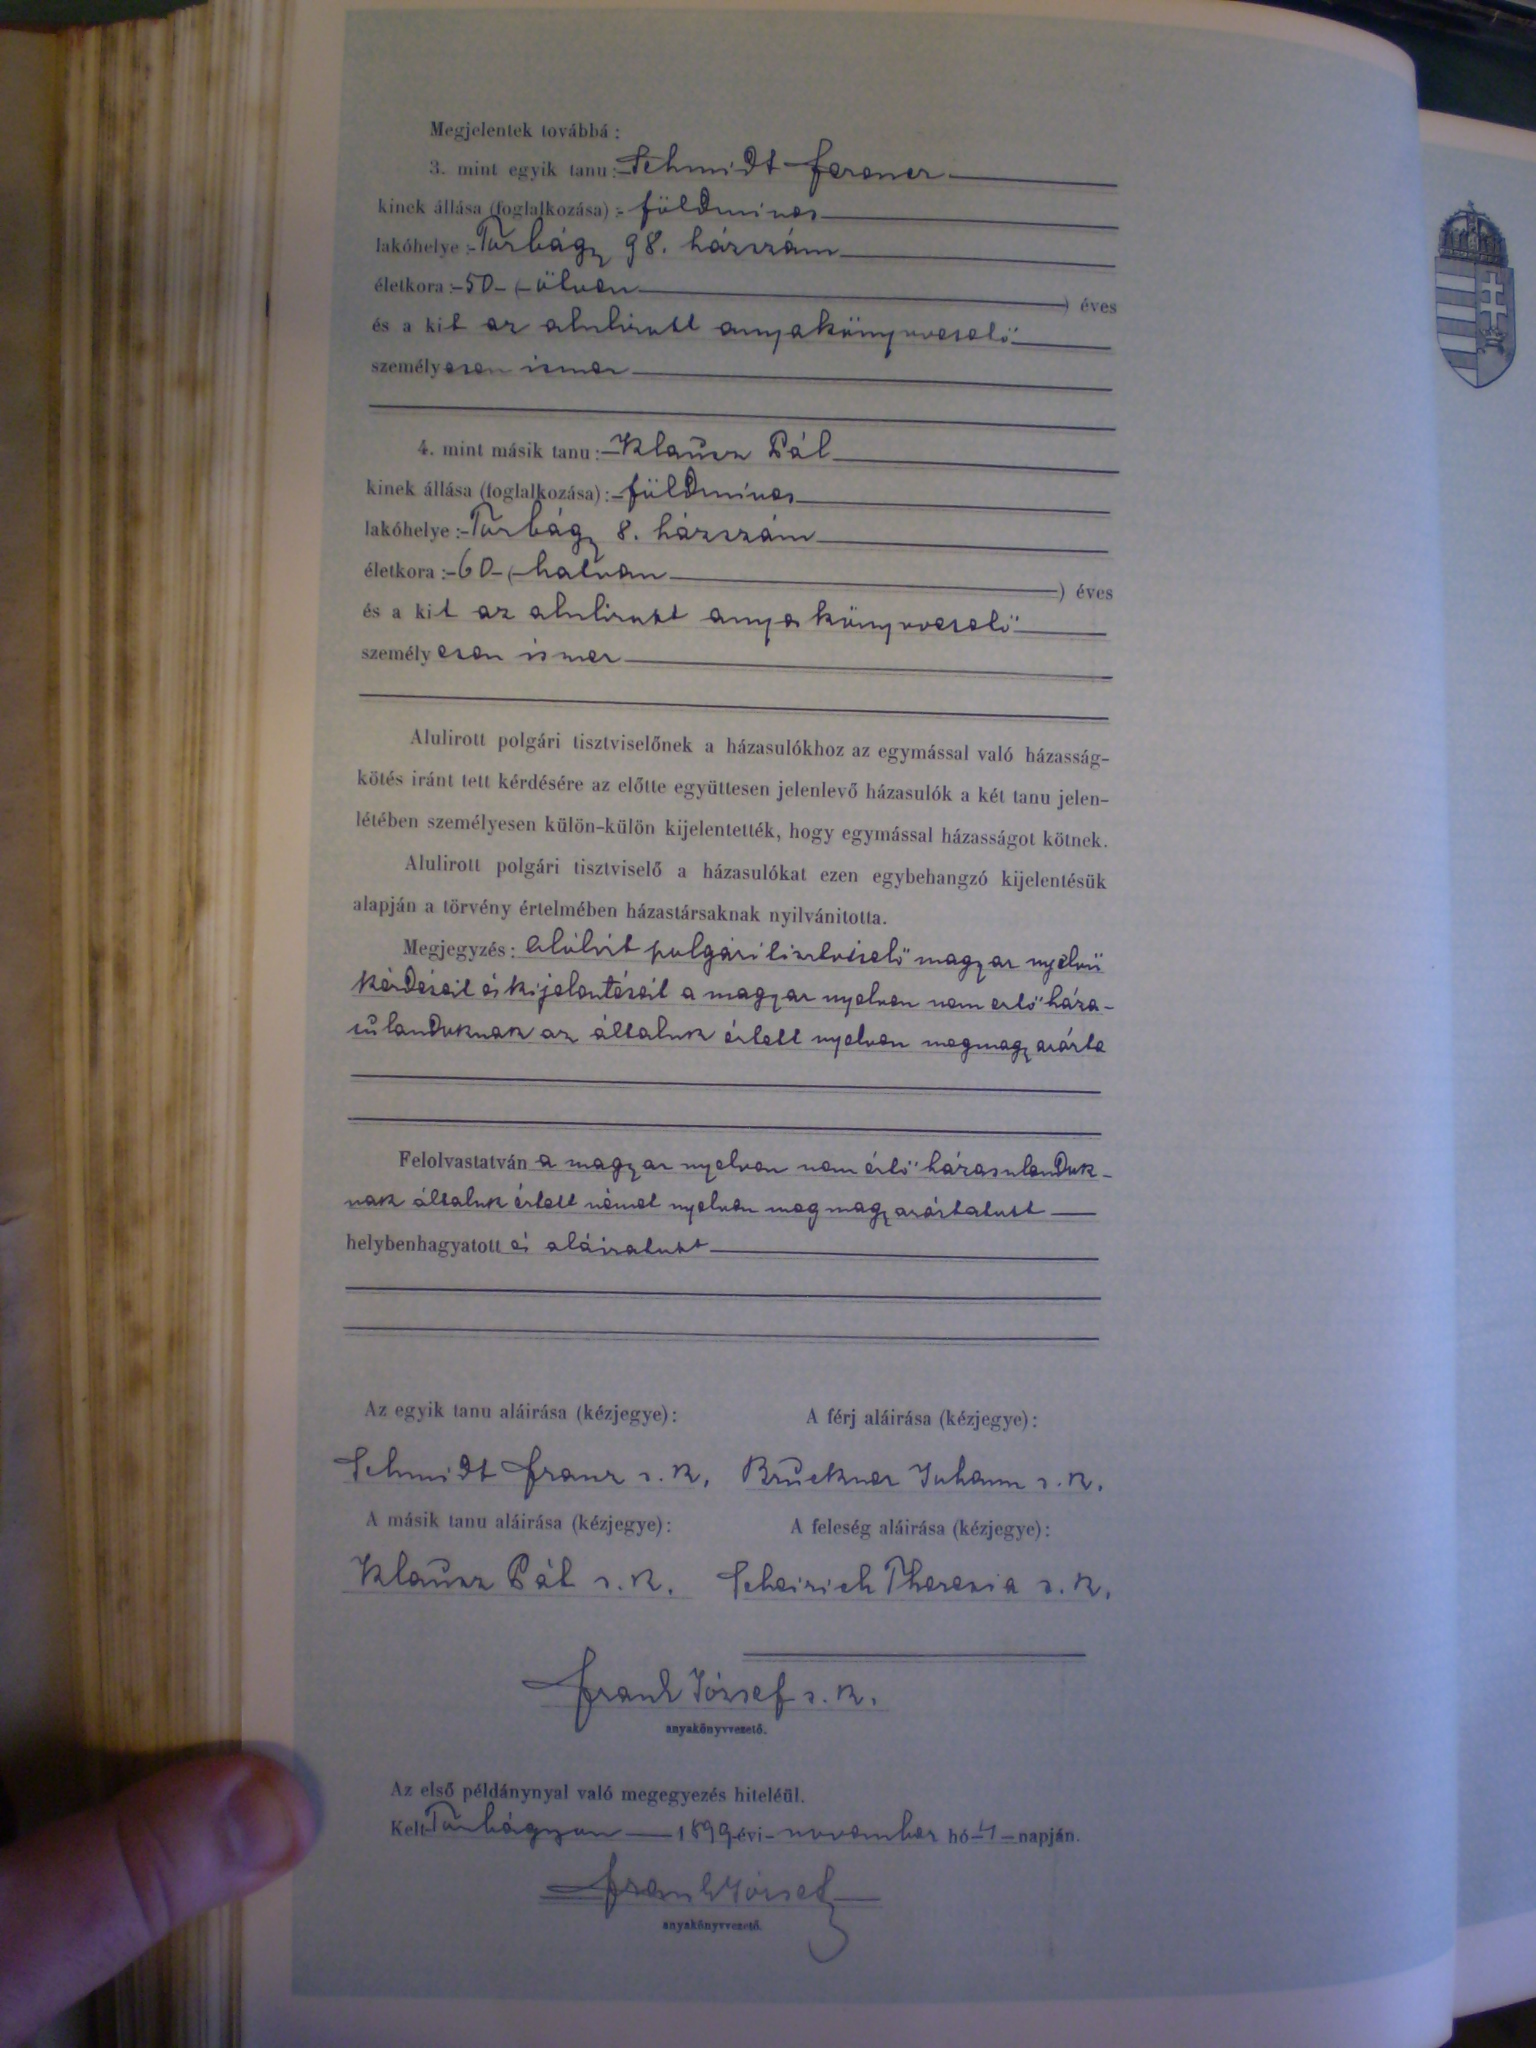 Megjelentek továbbá :
3. mint egyik tanu : Schmidt Ferencz
kinek állása (foglalkozása) : földmives
lakóhelye : Torbágy 98. házszám
életkora : -50- ( ötven ) éves
és a kit az alulirott anyakönyvvezető
személyesen ismer
4. mint másik tanu : Klausz Pál
kinek állása (foglalkozása) : földmives
lakóhelye : Torbágy 8. házszám
életkora : -60- ( hatvan ) éves
és a kit az alulirott anyakönyvvezető
személyesen ismer
Alulirott polgári tisztviselőnek a házasulókhoz az egymással való házasság-
kötés iránt tett kérdésére az előtte együttesen jelenlevő házasulók a két tanu jelen-
létében személyesen külön-külön kijelentették, hogy egymással házasságot kötnek.
Alulirott polgári tisztviselő a házasulókat ezen egybehangzó kijelentésük
alapján a törvény értelmében házastársaknak nyilvánitotta.
Megjegyzés : alólirt polgári tisztviselő magyar nyelvü
kérdéseit és kijelentéseit a magyar nyelven nem értő háza-
sulandoknak az általuk értett nyelven megmagyarázta
Felolvastatván a magyar nyelven nem értő házasulandok-
nak általuk értett német nyelven megmagyaráztatott
helybenhagyatott és aláiratott
Az egyik tanu aláirása (kézjegye) :
A férj aláirása (kézjegye) :
Schmidt Franz s. k.
Bruckner Johann s. k.
A másik tanu aláirása (kézjegye) :
A feleség aláirása (kézjegye) :
Klausz Pál s. k.
Scheirich Theresia s. k.
Frank József s. k.
anyakönyvvezető.
Az első példánynyal való megegyezés hiteléül.
Kelt Torbágyon 1899 évi november hó 4 napján.
Frank József
anyakönyvvezető.